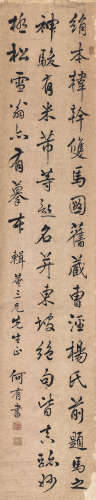 絹本韓幹雙馬圖舊藏曹涇楊氏前題馬之
神駿有米芾等名并東坡絕句皆真跡妙
極松雪翁亦有摹本 輯菴三兄先生正 何書